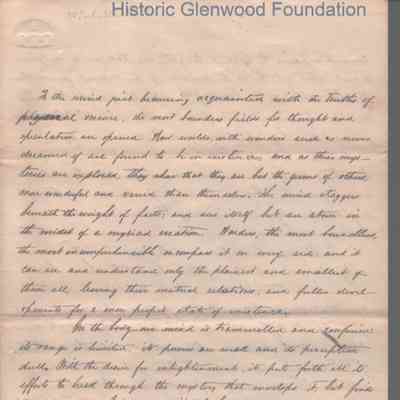 Historic Glenwood Foundation
To the mind just becoming acquainted with the truths of
physical science, the most boundless fields for thought and
speculation are opened. New worlds, with wonders such as never
dreamed of are found to be in existence, and as these mys-
teries are explored, they show that they are but the germs of others
more wonderful and varied than themselves. The mind staggers
beneath the weight of facts, and sees itself but an atom in
the midst of a myriad creation. Wonders, the most boundless,
the most incomprehensible encompass it on every side, and it
can see and understand only the plainest and smallest of
them all, leaving their mutual relations, and fuller devel-
opments for a more perfect state of existence.
In the body our mind is trammelled and confined
its range is limited, its powers are weak and its perceptions
dull. With the desire for enlightenment, it puts forth all its
efforts to break through the mystery that envelops it but finds